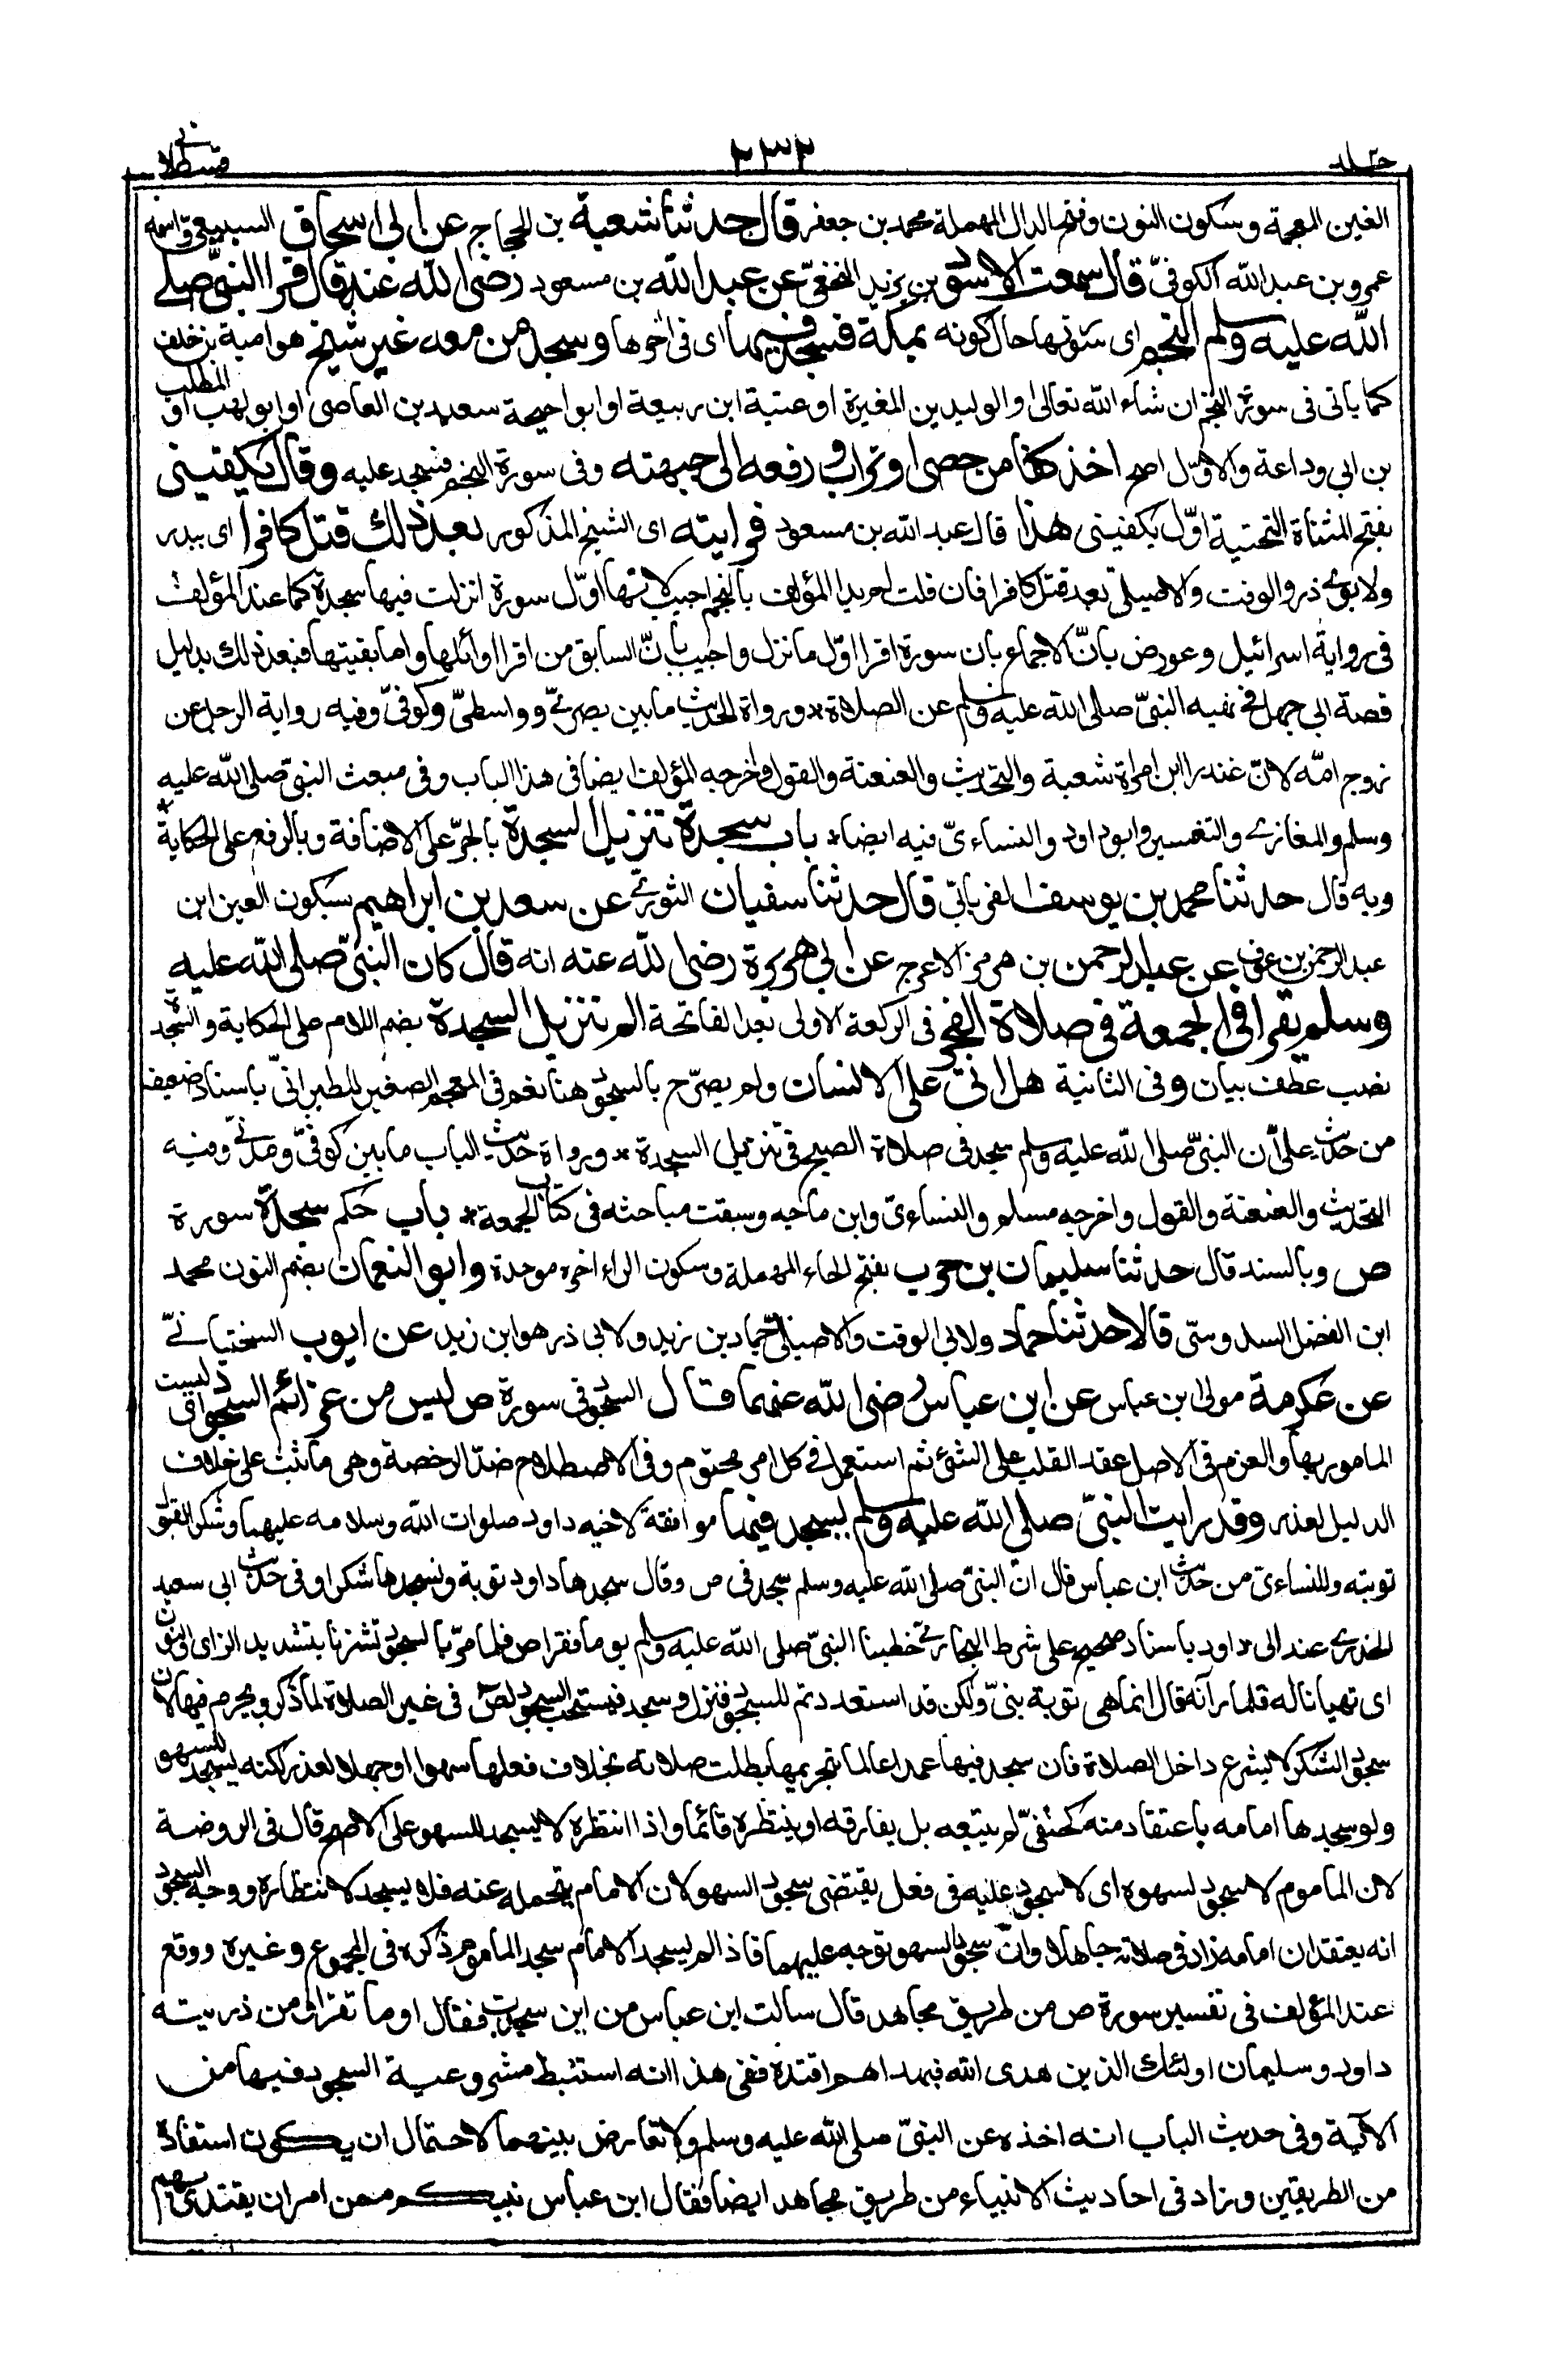 جلد ٢ ٢٣٢ قسطلانى
الغين المعجمة وسكون النون وفتح الدال المهملة محمد بن جعفر قال حدثنا شعبة بن الحجاج عن ابى اسحاق السبيعى واسمه
عمرو بن عبد الله الكوفىّ قال سمعت الاسود بن يزيد النخعىّ عن عبد الله بن مسعود رضى الله عنه قال قرا النبىّ صلى
الله عليه وسلم النجم اى سورتها حال كونه بمكة فسجد فيها اى فى اخرها وسجد من معه غير شيخ هو امية بن خلف
كما ياتى فى سورة النجم ان شاء الله تعالى او الوليد بن المغيرة او عتبة ابن ربيعة او ابو احيحة سعيد بن العاصى او ابو لهب او المطلب
بن ابى وداعة والاوّل اصح اخذ كفا من حصى او تراب ورفعه الى جبهته وفى سورة النجم فسجد عليه وقال يكفينى
بفتح المثناة التحتية اوّل يكفينى هذا قال عبد الله بن مسعود فرايته اى الشيخ المذكور بعد ذلك قتل كافرا اى ببدر
ولابوى ذر والوقت والاصيلى بعد قتل كافرا فان قلت لم بدا المؤلف بالنجم اجيب لانها اوّل سورة انزلت فيها سجدة كما عند المؤلف
فى رواية اسرائيل وعورض بانّ الاجماع بان سورة اقرا اوّل ما نزل واجيب بانّ السابق من اقرا اوائلها واما بقيتها فبعد ذلك بدليل
قصة ابى جهل فى نهيه النبىّ صلى الله عليه وسلم عن الصلاة * ورواة الحديث ما بين بصرىّ وواسطىّ وكوفىّ وفيه رواية الرجل عن
زوج امّه لانّ غندرا ابن امراة شعبة والتحديث والعنعنة والقول واخرجه المؤلف ايضا فى هذا الباب وفى مبعث النبىّ صلى الله عليه
وسلم والمغازى والتفسير وابو داود والنساءىّ فيه ايضا * باب سجدة تنزيل السجدة بالجرّ على الاضافة وبالرفع على الحكاية *
وبه قال حدثنا محمد بن يوسف الفريابىّ قال حدثنا سفيان الثورىّ عن سعد بن ابراهيم بسكون العين ابن
عبد الرحمن بن عوف عن عبد الرحمن بن هرمز الاعرج عن ابى هريرة رضى الله عنه انه قال كان النبىّ صلى الله عليه
وسلم يقرا فى الجمعة فى صلاة الفجر فى الركعة الاولى بعد الفاتحة الم تنزيل السجدة بضم اللام على الحكاية والسجدة
نصب عطف بيان وفى الثانية هل اتى على الانسان ولم يصرّح بالسجود هنا نعم فى المعجم الصغير للطبرانىّ باسناد ضعيف
من حديث علىّ ان النبىّ صلى الله عليه وسلم سجد فى صلاة الصبح فى تنزيل السجدة * ورواة حديث الباب ما بين كوفىّ ومدنىّ وفيه
التحديث والعنعنة والقول واخرجه مسلم والنساءىّ وابن ماجه وسبقت مباحثه فى كتاب الجمعة * باب حكم سجدة سورة
ص وبالسند قال حدثنا سليمان بن حرب بفتح الحاء المهملة وسكون الراء اخره موحدة وابو النعمان بضم النون محمد
ابن الفضل السدوسىّ قالا حدثنا حماد ولابى الوقت والاصيلىّ حماد بن زيد ولابى ذر هو ابن زيد عن ايوب السختيانىّ
عن عكرمة مولى ابن عباس عن ابن عباس رضى الله عنهما قال السجود فى سورة ص ليس من عزائم السجود اى ليست
المامور بها والعزم فى الاصل عقد القلب على الشئ ثم استعمل فى كل امر محتوم وفى الاصطلاح ضدّ الرخصة وهى ما ثبت على خلاف
الدليل لعذر وقد رايت النبىّ صلى الله عليه وسلم يسجد فيها موافقة لاخيه داود صلوات الله وسلامه عليهما وشكرا لقبول
توبته وللنساءىّ من حديث ابن عباس قال انّ النبىّ صلى الله عليه وسلم سجد فى ص وقال سجدها داود توبة ونسجدها شكرا وفى حديث ابى سعيد
الخدرى عند ابى داود باسناد صحيح على شرط البخارىّ خطبنا النبىّ صلى الله عليه وسلم يوما فقرا ص فلما مرّ بالسجود تشزنا بتشديد الزاى والنون
اى تهيانا له فلما رآنه قال انما هى توبة نبىّ ولكن قد استعددتم للسجود فنزل وسجد فيستحب السجود لص فى غير الصلاة لما ذكر ويحرم فيها لان
سجود الشكر لا يشرع داخل الصلاة فان سجد فيها عمدا عالما بتحريمها بطلت صلاته بخلاف فعلها سهوا او جهلا لعذر لكنه يسجد للسهو
ولو سجدها امامه باعتقاد منه كحنفىّ لم يتبعه بل يفارقه او ينتظره قائما واذا انتظره لا يسجد للسهو على الاصح قال فى الروضة
لان الماموم لا سجود لسهوه اى لا سجود عليه فى فعل يقتضى سجود السهو لان الامام يتحمله عنه فلا يسجد لانتظاره ووجه السجود
انه يعتقد ان امامه زاد فى صلاته جاهلا وانّ سجود السهو توجه عليهما فاذا لم يسجد الامام سجد الماموم ذكره فى المجموع وغيره ووقع
عند المؤلف فى تفسير سورة ص من طريق مجاهد قال سالت ابن عباس من اين سجدت فقال او ما تقرا ومن ذريته
داود وسليمان اولئك الذين هدى الله فبهداهم اقتده ففى هذا انه استنبط مشروعية السجود فيها من
الآية وفى حديث الباب انه اخذه عن النبىّ صلى الله عليه وسلم ولا تعارض بينهما لاحتمال ان يكون استفاده
من الطريقين وزاد فى احاديث الانبياء من طريق مجاهد ايضا فقال ابن عباس نبيكم ممن امر ان يقتدى بهم